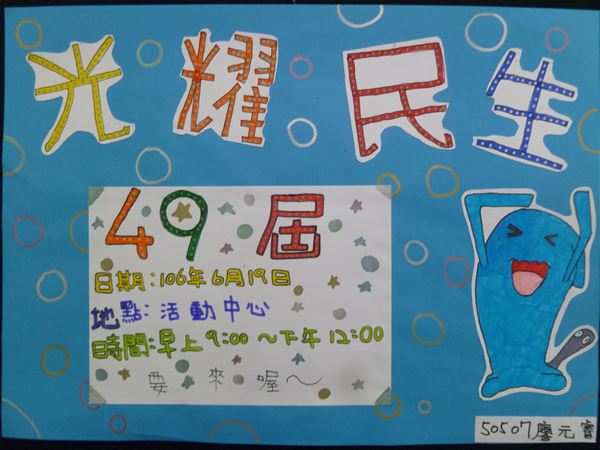 光耀民生
49屆
日期:106年6月19日
地點:活動中心
時間:早上9:00~下午12:00
要來喔~
50507廖元